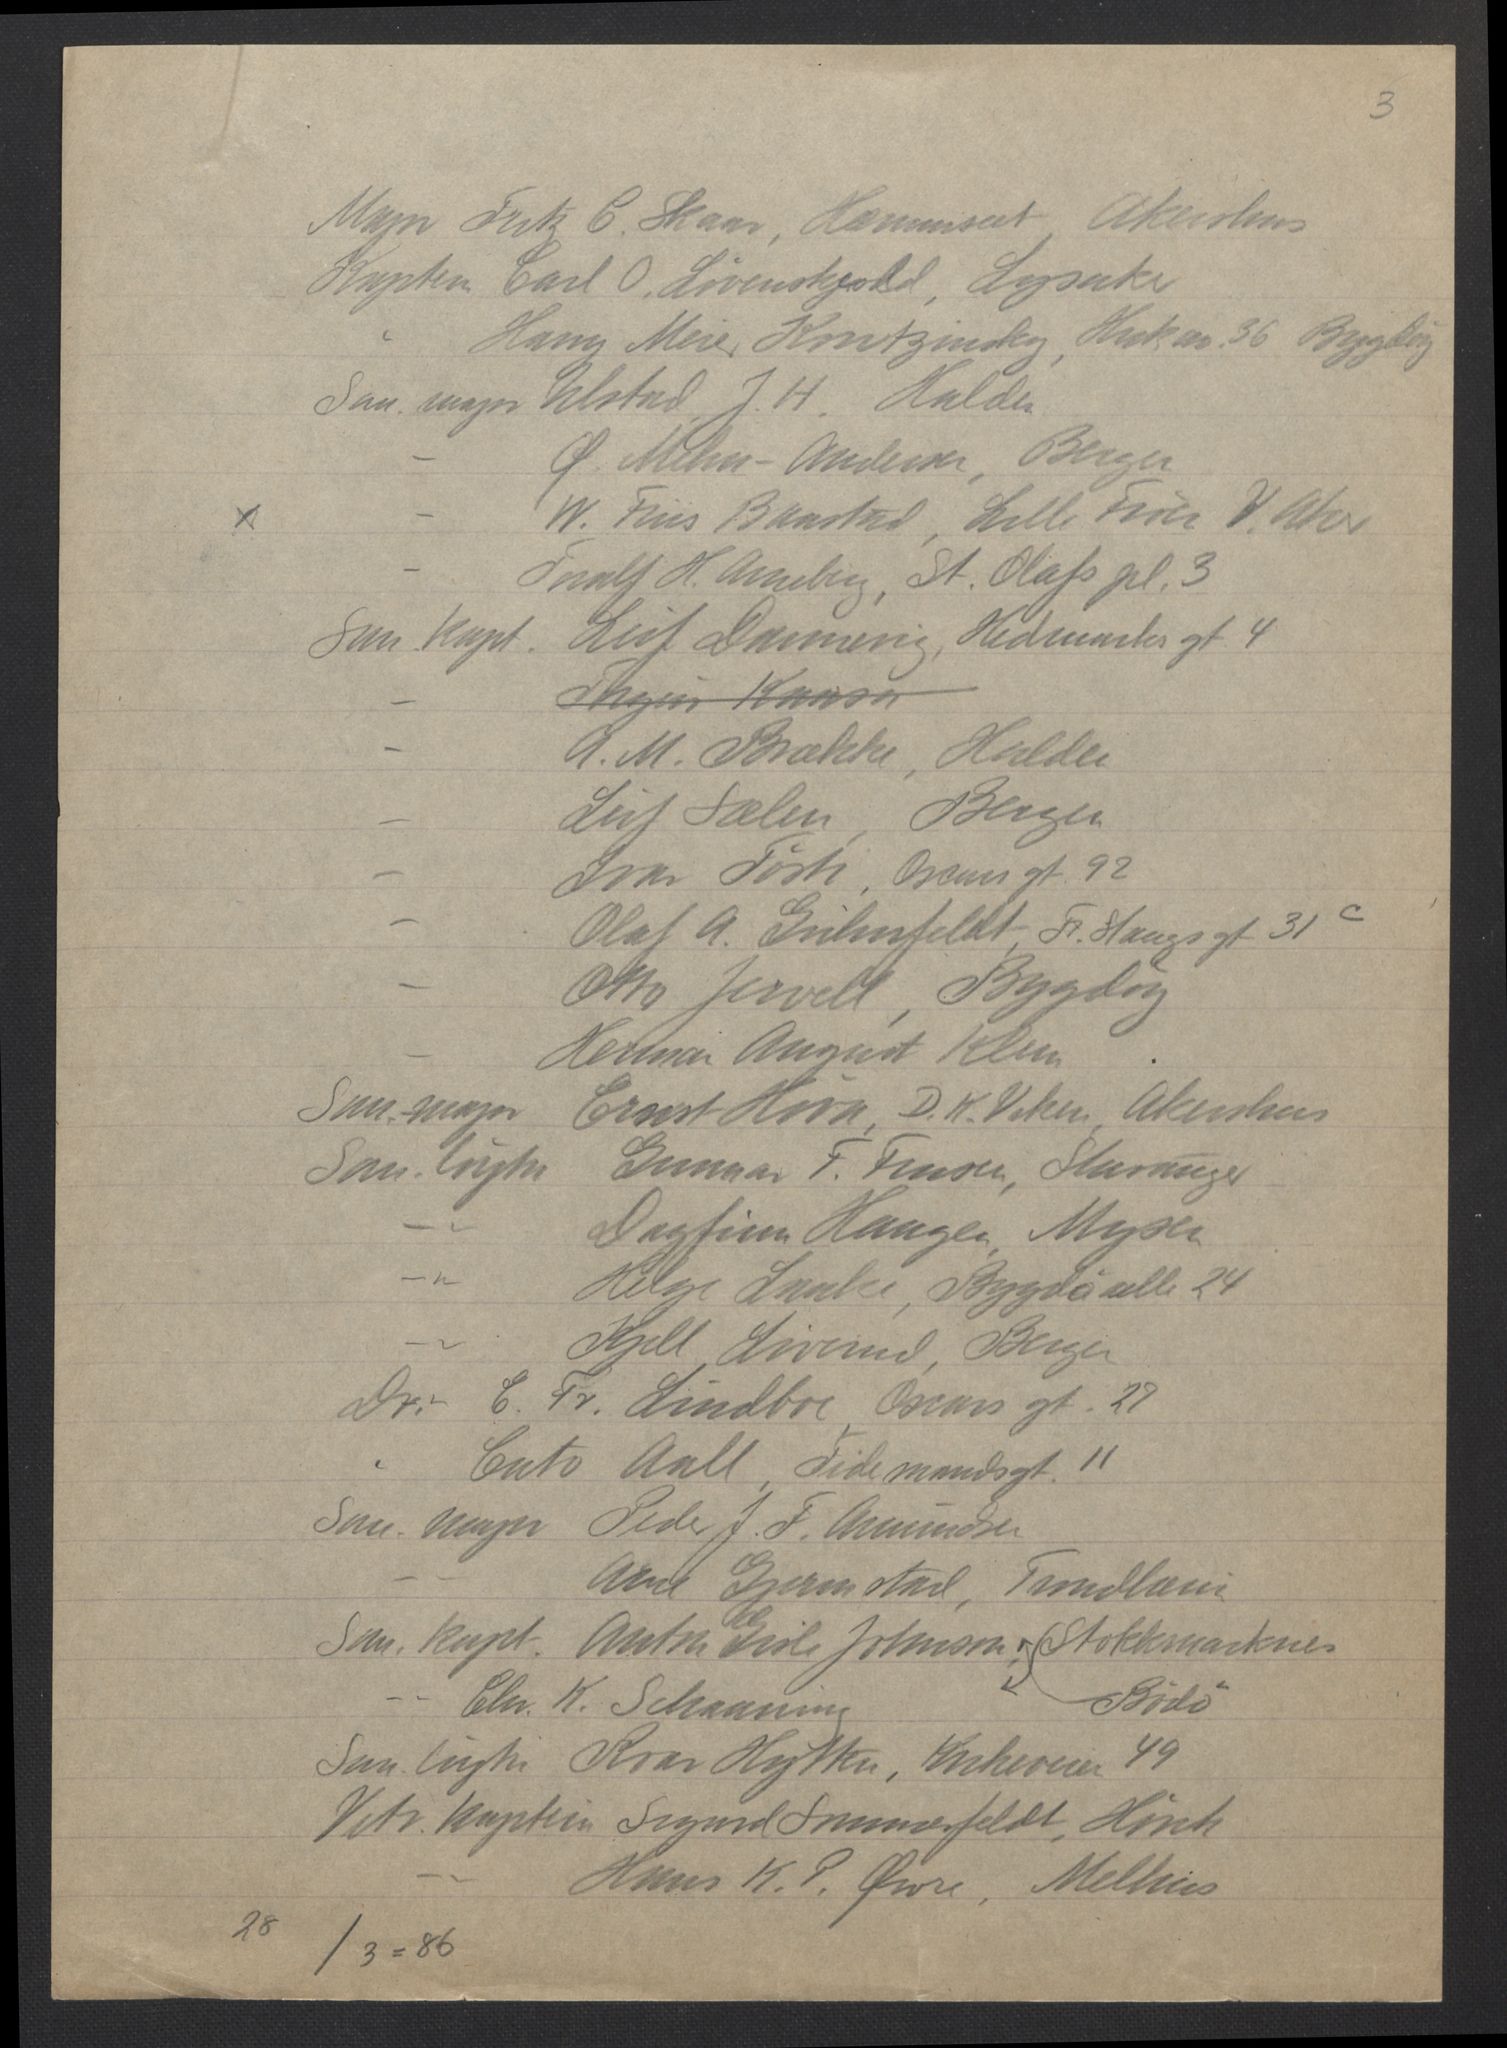 3
Major Fritz C. Skaar, Akershus
Kaptein Carl O. Lövenskjold, Lysaker
" Harry Meier Koritzinsky, Huk av. 36 Bygdöy
San. major Ulstad J. H. Halden
- Ø. Mehn-Andersen, Bergen
x - W. Friis Baastad, Lille Fröen V. Aker
- H. Arneberg, St. Olafs pl. 3
San. kapt. Leif Dannevig, Hedmarks gt. 4
-
- A. M. Brække, Halden
- Leif Sælen, Bergen
- Ivar, Oscars gt. 92
- Olaf A., Fr. Stangs gt 31 c
- Otto Jervell, Bygdöy
- Herman August Klem
San. major Ernst Hörn, D.K. Viken, Akershus
San. löytn Gunnar F. Finsen, Stavanger
-"- Dagfinn Haugen, Mysen
-"- Helge Laake, Bygdö alle 24
-"- Kjell Liverud, Bergen
Dr. C. Fr. Lindboe, Oscars gt. 27
" Cato Aall, Tidemandsgt. 11
San. major Peder J. F. Amundsen
-- Arne Gjermstad, Trondheim
San. kapt. Anton Johnson, Stokkmarknes
-- Chr. K. Schaanning Bödö
San. löytn Roar Hytten, Kirkeveien 49
Vetr. kaptein Sigurd Sommerfeldt,
-"- Hans K. P. Øvre, Melhus
28 / 3 = 86